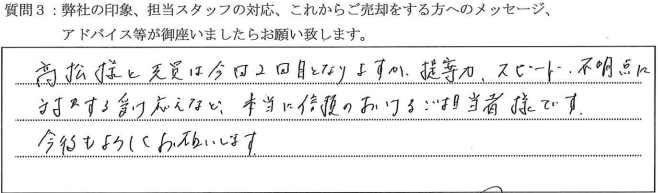 質問3：弊社の印象、担当スタッフの対応、これからご売却をする方へのメッセージ、
アドバイス等が御座いましたらお願い致します。
高松様と売買は今回2回目となりますが、提案力、スピード、不明点に
対する受け応えなど、本当に信頼のおけるご担当者様です。
今後もよろしくお願いします